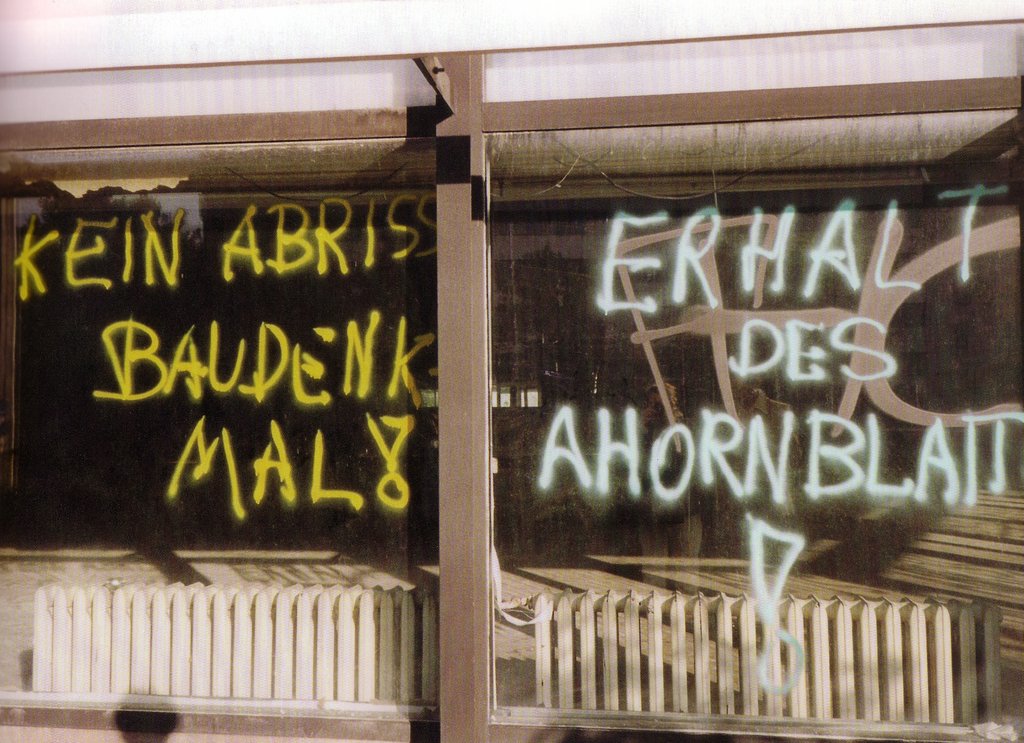 KEIN ABRISS
BAUDENK-
MAL!
ERHALT
DES
AHORNBLATT
!